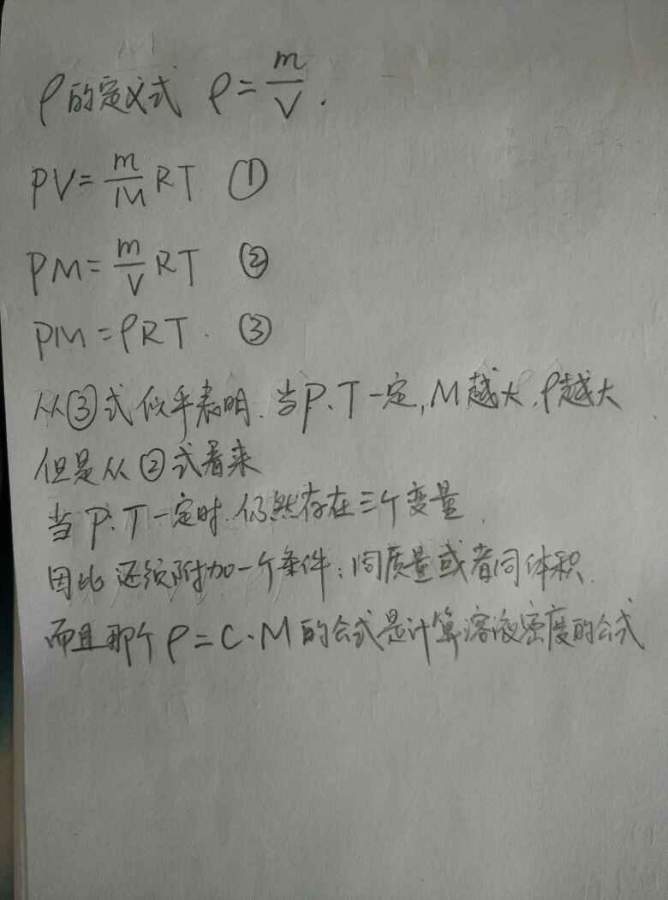 ρ的定义式 ρ=m/V.
PV=m/M RT ①
PM=m/V RT ②
PM=ρRT. ③
从③式似乎表明.当P.T一定,M越大.ρ越大
但是从②式看来
当P.T一定时.仍然存在三个变量.
因此还须附加一个条件:同质量或者同体积.
而且那个ρ=C·M的公式是计算溶液密度的公式